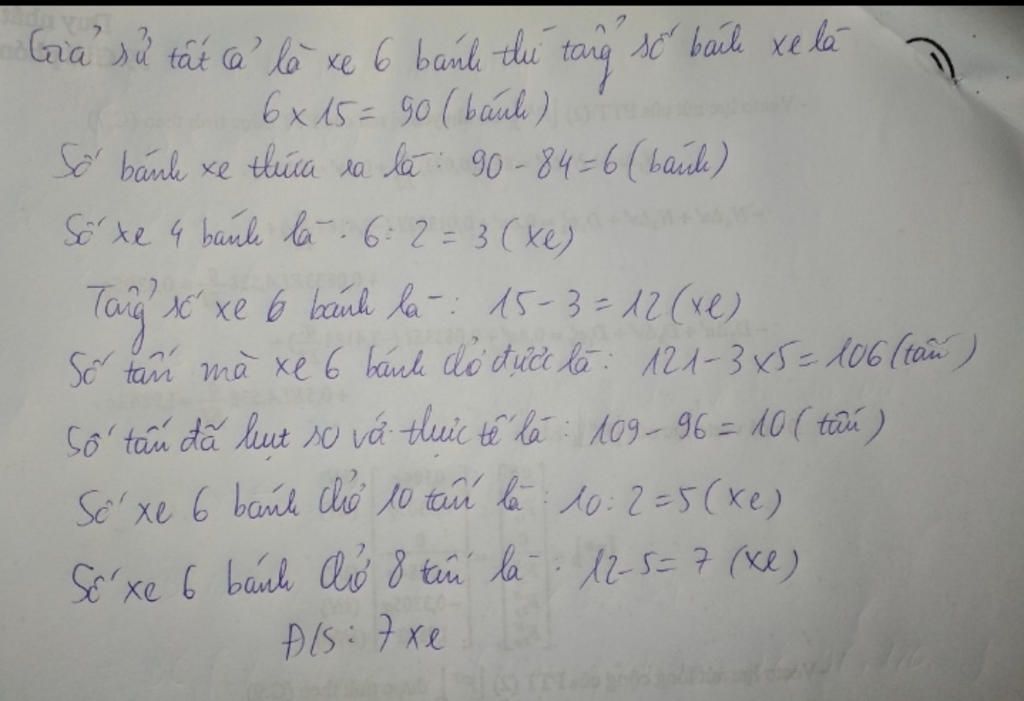 Giả sử tất cả là xe 6 bánh thì tổng số bánh xe là
6 x 15 = 90 (bánh)
Số bánh xe thừa ra là: 90 - 84 = 6 (bánh)
Số xe 4 bánh là: 6 : 2 = 3 (xe)
Tổng số xe 6 bánh là: 15 - 3 = 12 (xe)
Số tấn mà xe 6 bánh chở được là: 121 - 3 x 5 = 106 (tấn)
Số tấn đã hụt so với thực tế là: 109 - 96 = 10 (tấn)
Số xe 6 bánh chở 10 tấn là: 10 : 2 = 5 (xe)
Số xe 6 bánh chở 8 tấn là: 12 - 5 = 7 (xe)
Đ/S: 7 xe